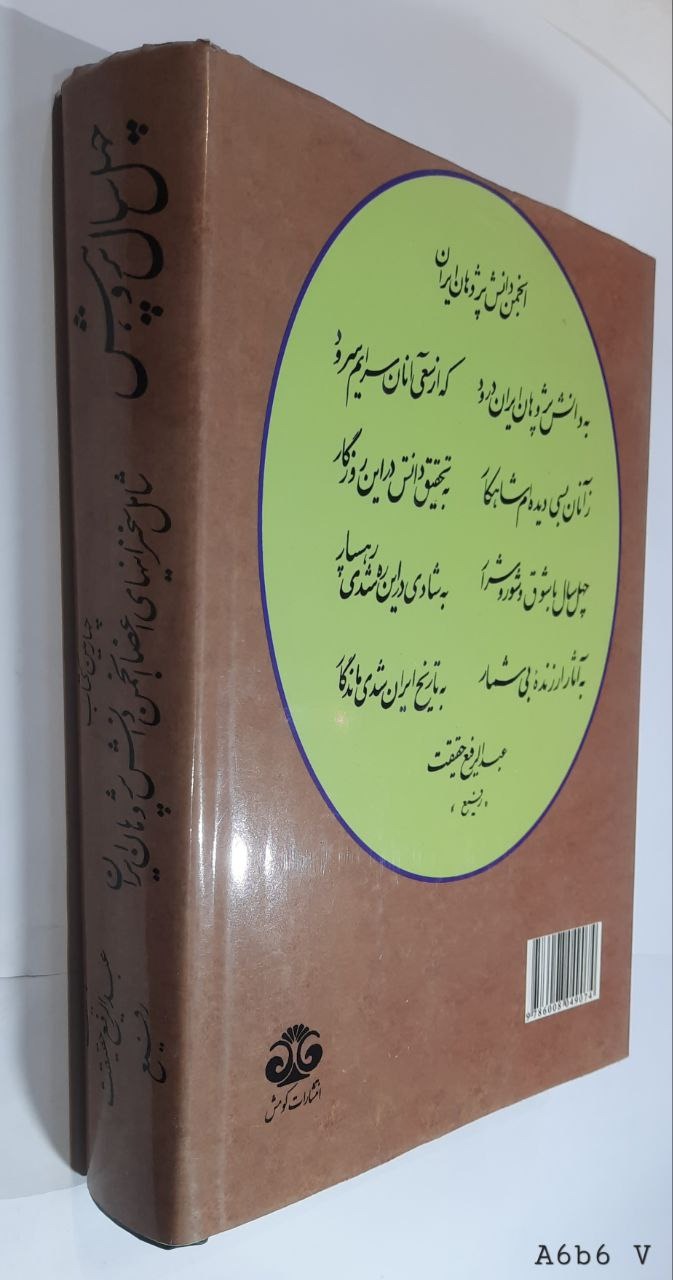 چهل سال پژوهش
شامل سخنرانیهای اعضا انجمن دانش پژوهان ایران
چهارمین کتاب
عبدالرفیع حقیقت
رفیع
انجمن دانش پژوهان ایران
به دانش پژوهان ایران درود که از سعی آنان سرایم سرود
ز آنان بسی دیده ام شاهکار به تحقیق دانش در این روزگار
چهل سال با شوق و شور و شرار به شادی در این ره شدی رهسپار
به آثار ارزندهٔ بی شمار به تاریخ ایران شدی ماندگار
عبدالرفیع حقیقت
«رفیع»
9 786008 049074
انتشارات کومش
A6b6 V